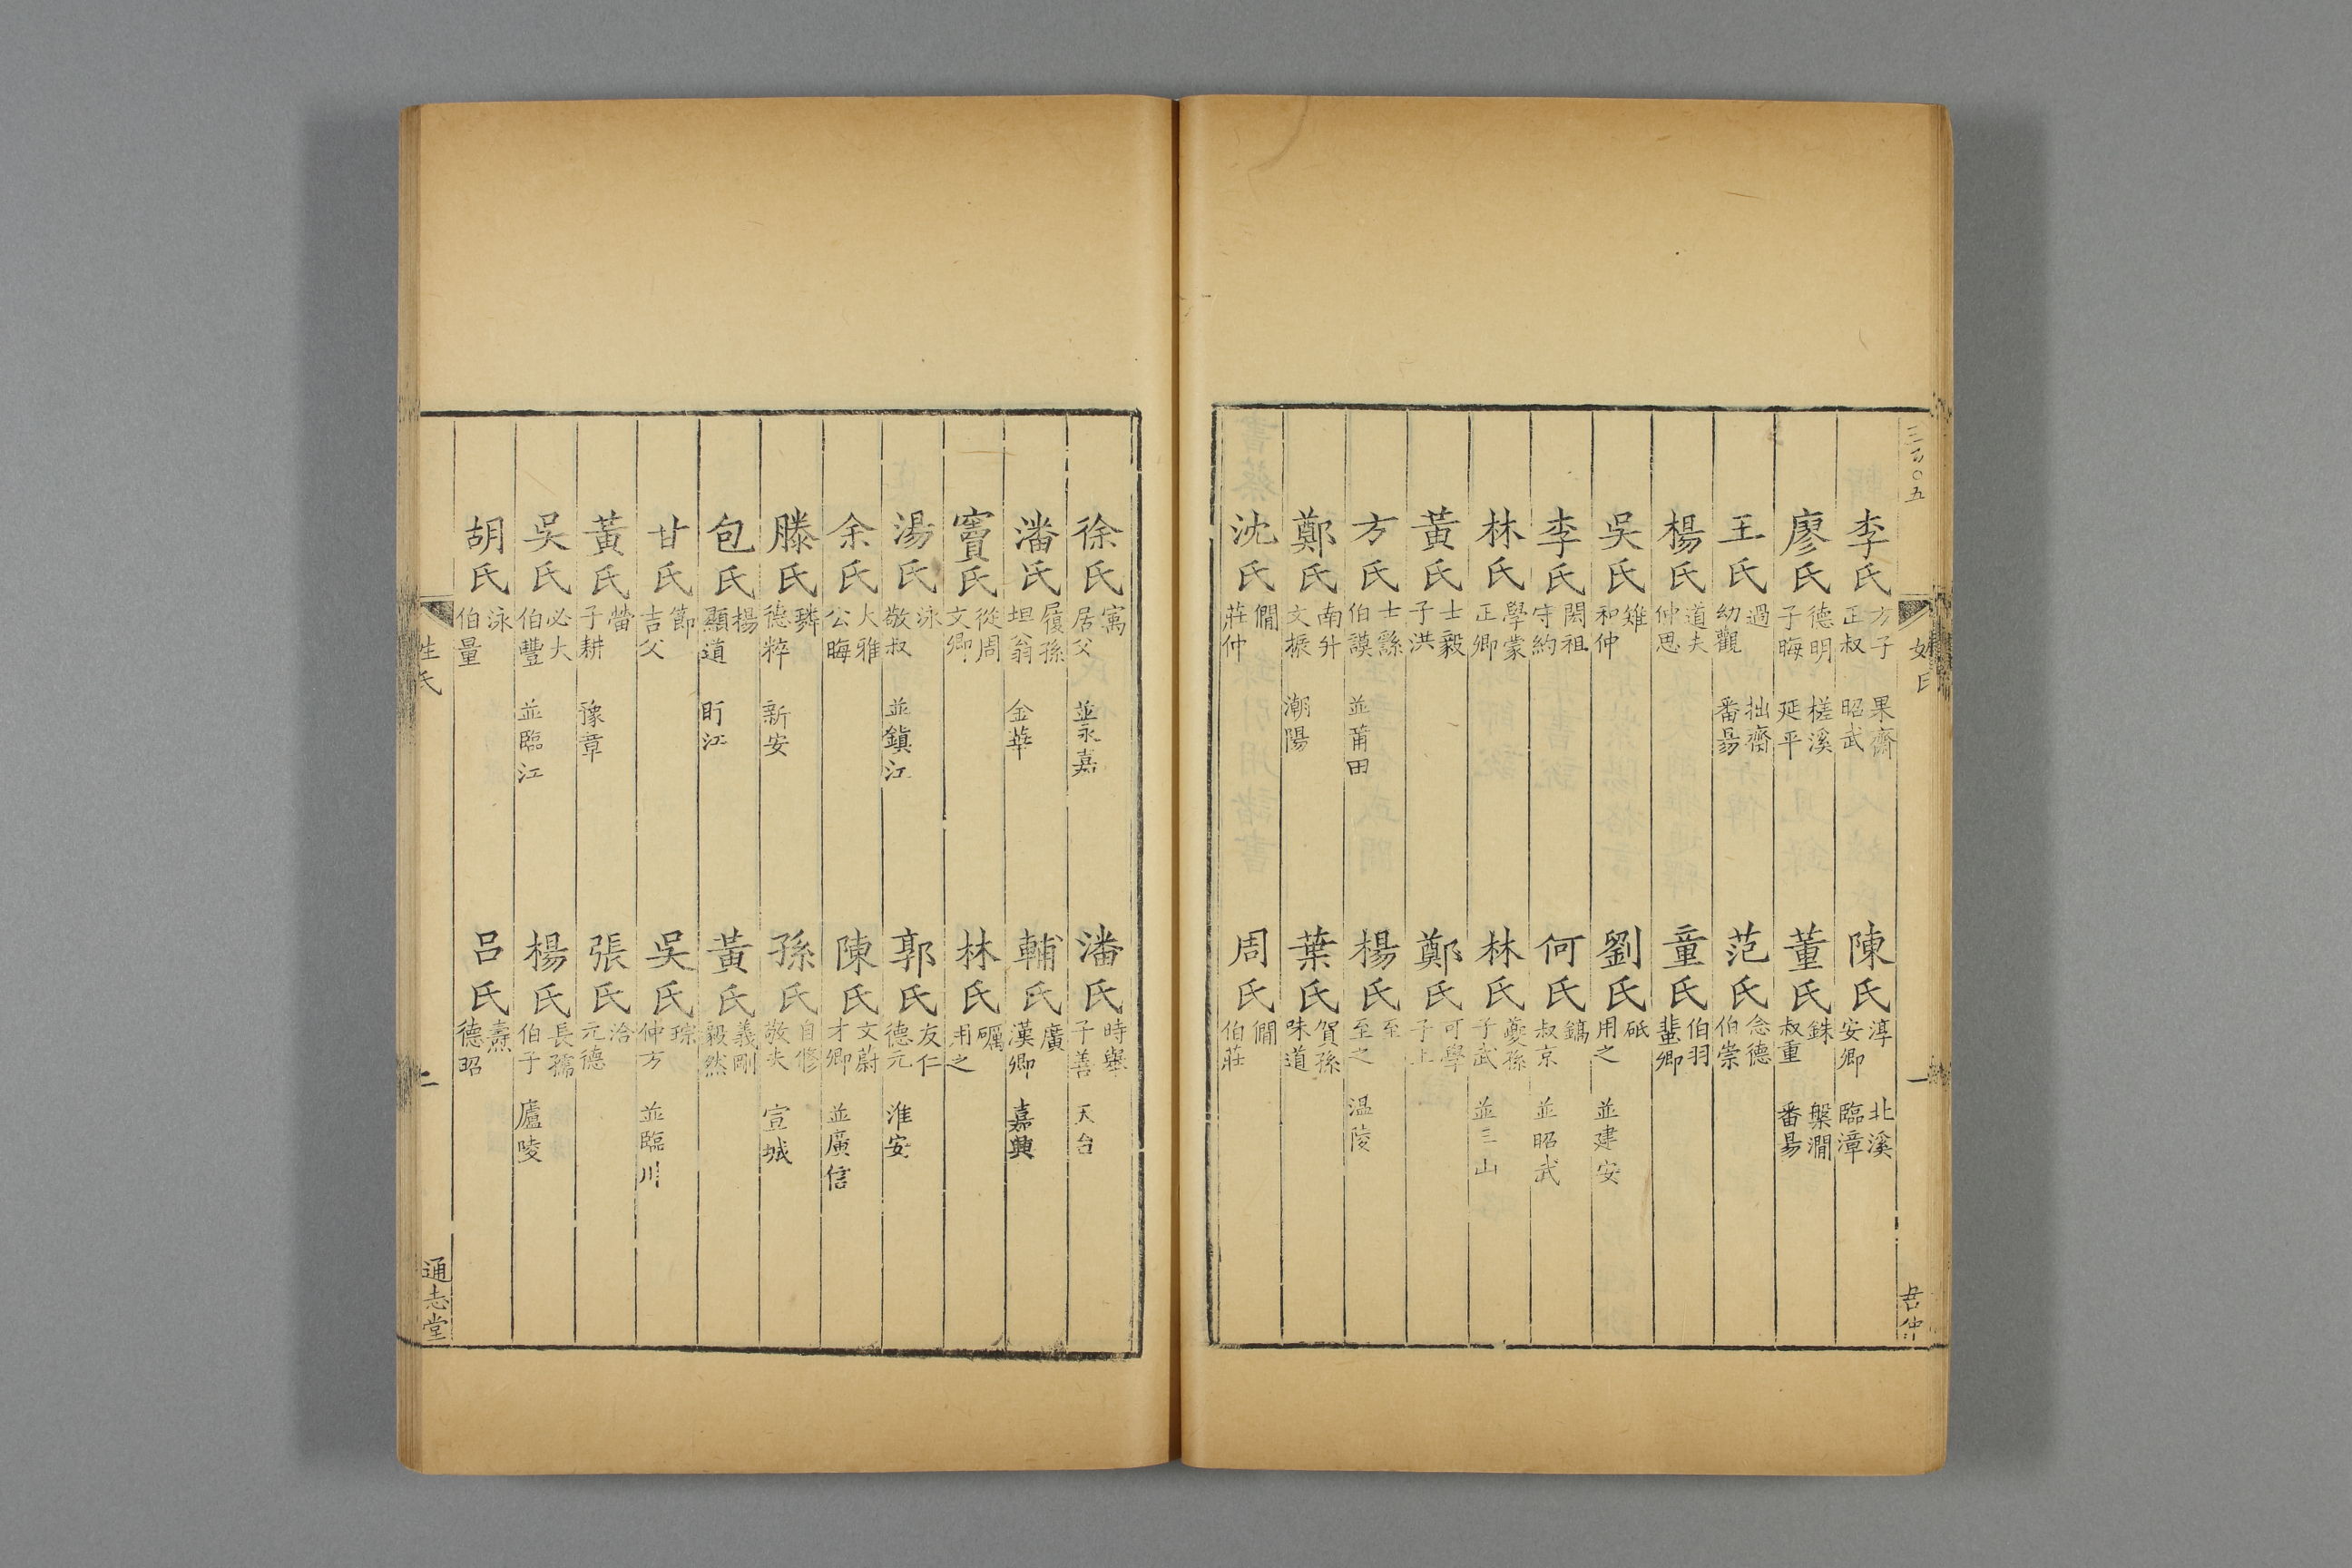 三百〇五
李氏 方子 正叔 果齋 昭武 陳氏 淳 安卿 北溪 臨漳
廖氏 德明 子晦 槎溪 延平 董氏 銖 叔重 槃澗 番昜
王氏 過 幼觀 拙齋 番昜 范氏 念德 伯崇
楊氏 道夫 仲思 童氏 伯羽 蜚卿
吳氏 雉 和仲 劉氏 砥 用之 並建安
李氏 閎祖 守約 何氏 鎬 叔京 並昭武
林氏 學蒙 正卿 林氏 夔孫 子武 並三山
黃氏 士毅 子洪 鄭氏 可學 子上
方氏 士繇 伯謨 並莆田 楊氏 至 至之 溫陵
鄭氏 南升 文振 潮陽 葉氏 賀孫 味道
沈氏 僩 莊仲 周氏 僩 伯莊
徐氏 㝢 居父 並永嘉 潘氏 時舉 子善 天台
潘氏 履孫 坦翁 金華 輔氏 廣 漢卿 嘉興
竇氏 從周 文卿 林氏 礪 用之
湯氏 泳 敬叔 並鎮江 郭氏 友仁 德元 淮安
余氏 大雅 公晦 陳氏 文蔚 才卿 並廣信
滕氏 璘 德粹 新安 孫氏 自修 敬夫 宣城
包氏 揚 顯道 盱江 黃氏 義剛 毅然
甘氏 節 吉父 吳氏 琮 仲方 並臨川
黃氏 㽦 子耕 豫章 張氏 洽 元德
吳氏 必大 伯豐 並臨江 楊氏 長孺 伯子 廬陵
胡氏 泳 伯量 呂氏 燾 德昭
姓氏 二 通志堂